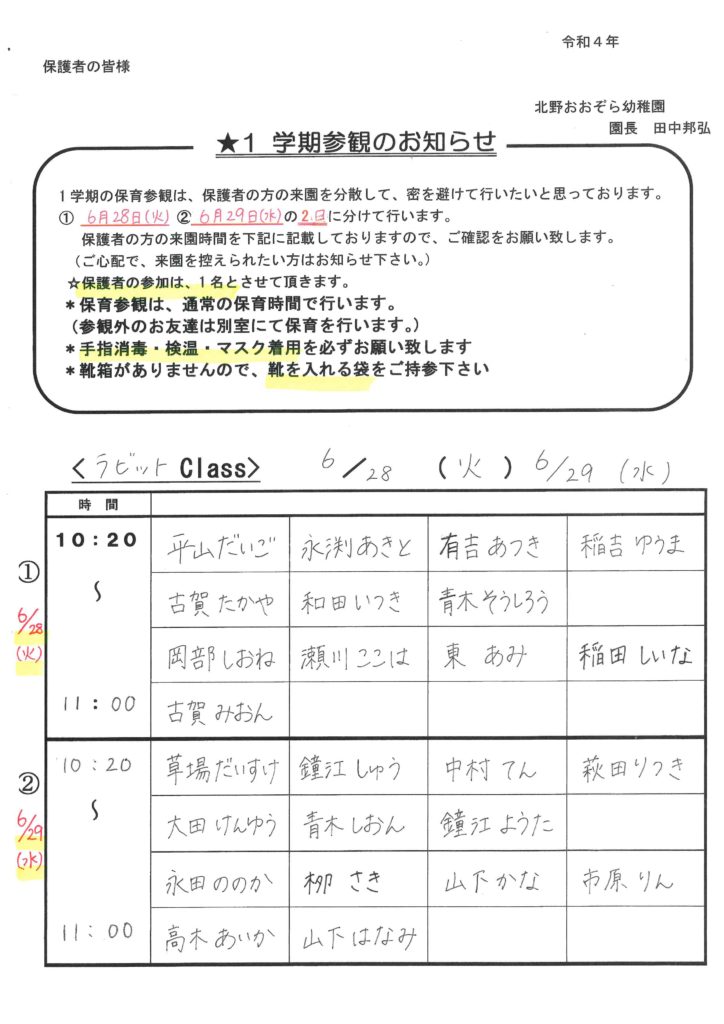 令和4年
保護者の皆様
北野おおぞら幼稚園
園長 田中邦弘
★1 学期参観のお知らせ
1学期の保育参観は、保護者の方の来園を分散して、密を避けて行いたいと思っております。
① 6月28日(火) ② 6月29日(水)の2日に分けて行います。
保護者の方の来園時間を下記に記載しておりますので、ご確認をお願い致します。
(ご心配で、来園を控えられたい方はお知らせ下さい。)
☆保護者の参加は、1名とさせて頂きます。
*保育参観は、通常の保育時間で行います。
(参観外のお友達は別室にて保育を行います。)
*手指消毒・検温・マスク着用を必ずお願い致します
*靴箱がありませんので、靴を入れる袋をご持参下さい
<ラビット Class> 6/28 (火) 6/29 (水)
時 間
① 6/28 (火)
10:20 〜 11:00
平山だいご 永渕あきと 有吉あつき 稲吉ゆうま
古賀たかや 和田いつき 青木そうしろう
岡部しおね 瀬川ここは 東 あみ 稲田しいな
古賀みおん
② 6/29 (水)
10:20 〜 11:00
草場だいすけ 鐘江しゅう 中村てん 萩田りつき
大田けんゆう 青木しおん 鐘江ようた
永田ののか 柳 さき 山下かな 市原りん
高木あいか 山下はなみ